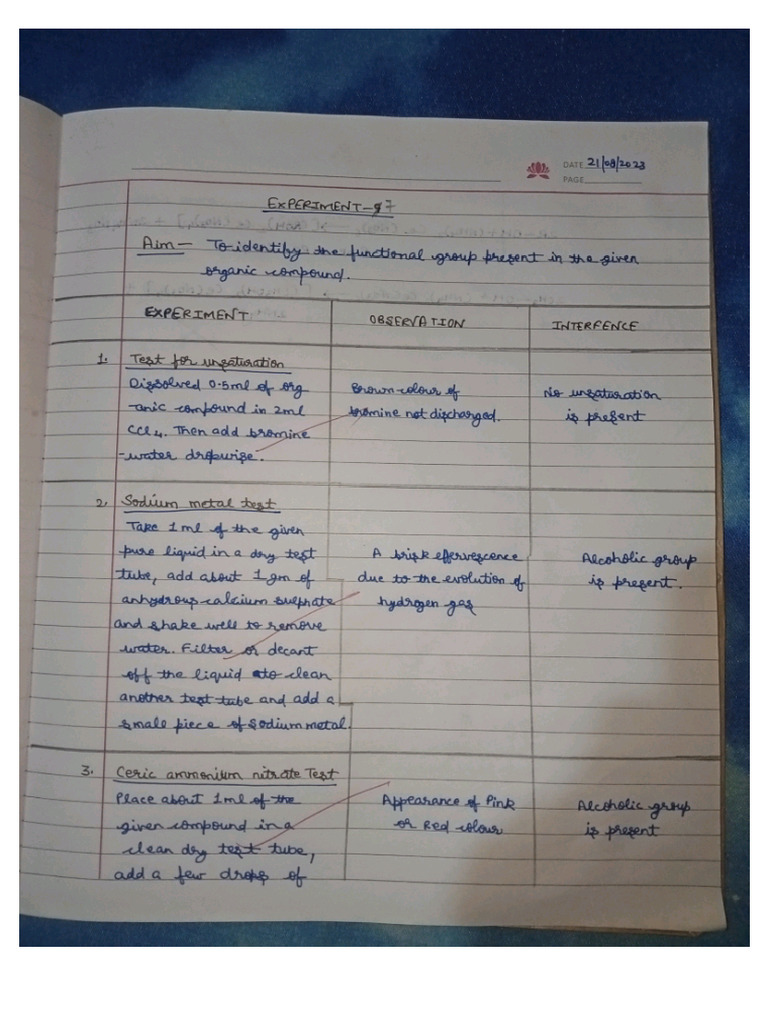 DATE 21/08/2023
PAGE
EXPERIMENT-97
Aim- To identify the functional group present in the given
organic compound.
EXPERIMENT OBSERVATION INTERFENCE
1. Test for unsaturation
Dissolved 0.5ml of org
-anic compound in 2ml
CCl4. Then add bromine
-water dropwise.
Brown colour of
bromine not discharged.
No unsaturation
is present
2. Sodium metal test
Take 1ml of the given
pure liquid in a dry test
tube, add about 1gm of
anhydrous calcium sulphate
and shake well to remove
water. Filter or decant
off the liquid to clean
another test tube and add a
small piece of sodium metal.
A brisk effervescence
due to the evolution of
hydrogen gas
Alcoholic group
is present.
3. Ceric ammonium nitrate Test
Place about 1ml of the
given compound in a
clean dry test tube,
add a few drops of
Appearance of Pink
or Red colour
Alcoholic group
is present